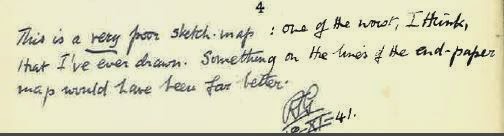 4
This is a very poor sketch-map : one of the worst, I think,
that I've ever drawn. Something on the lines of the end-paper
map would have been far better.
-XI-41.